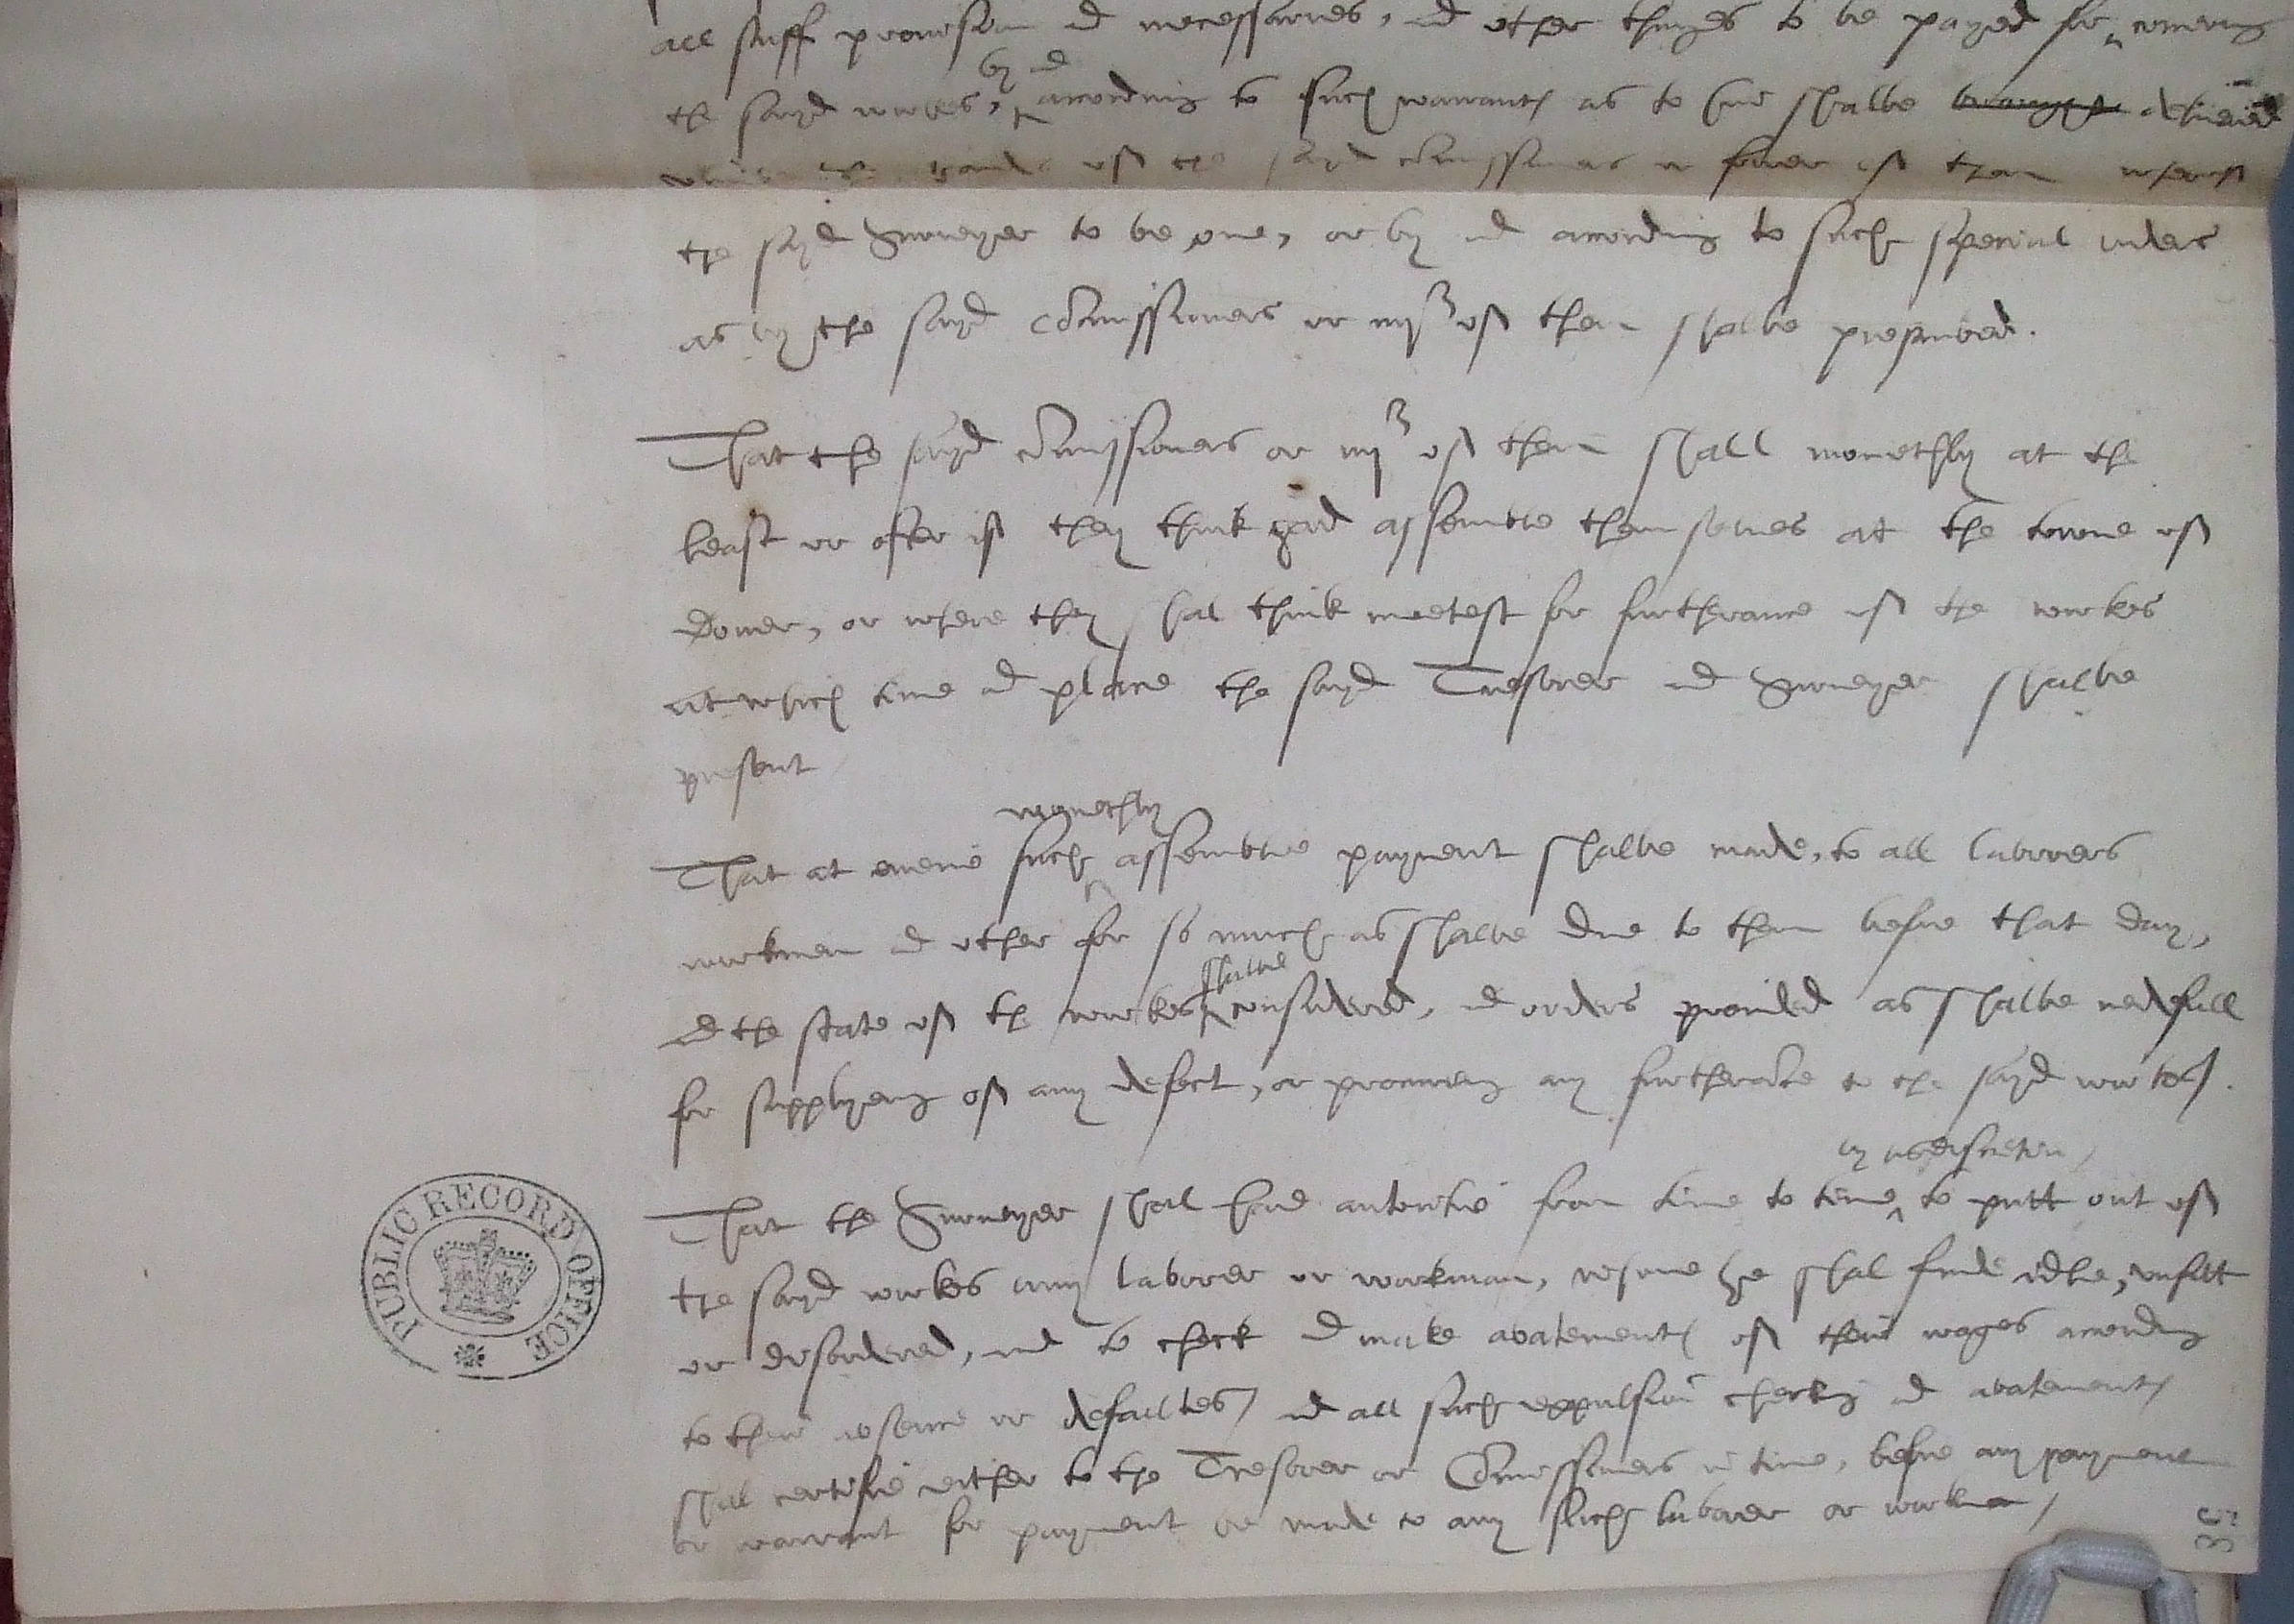 all stuff provision & necessaries, & other things to be payed for, concerning
by &
the sayd workes, according to such warrants as to him shalbe brought delivered
under the hands of the sayd comissioners or fower of them wherof
the sayd Surveyer to be one, or by & according to such special orders
as by the sayd comissioners or iiij of them shalbe prescribed.
That the sayd comissioners or iiij of them shall monethly at the
least or ofter if they think good assemble themselves at the towne of
Dover, or where they shal think meetest for furtherance of the workes
at which time & place the sayd Tresorer & Surveyer shalbe
present
monethly
That at everie such assemblie payment shalbe made, to all laborers
workmen & other for so much as shalbe due to them before that day,
shalbe
& the state of the workes considered, & orders provided as shalbe nedefull
for supplyeng of any defect, or procuring any furtherance to the sayd workes.
by discretion
That the Surveyer shall have autoritie from time to time to putt out of
the sayd workes any laborer or workman, whome he shal finde idle, unfitt
or disordered, and to check & make abatements of their wages according
to their absence or defaultes / & all such expulsion checking & abatements
shal certifie either to the Tresorer or Comissioners in time, before any payment
or warrant for payment be made to any such laborer or workman /
PUBLIC RECORD OFFICE
36